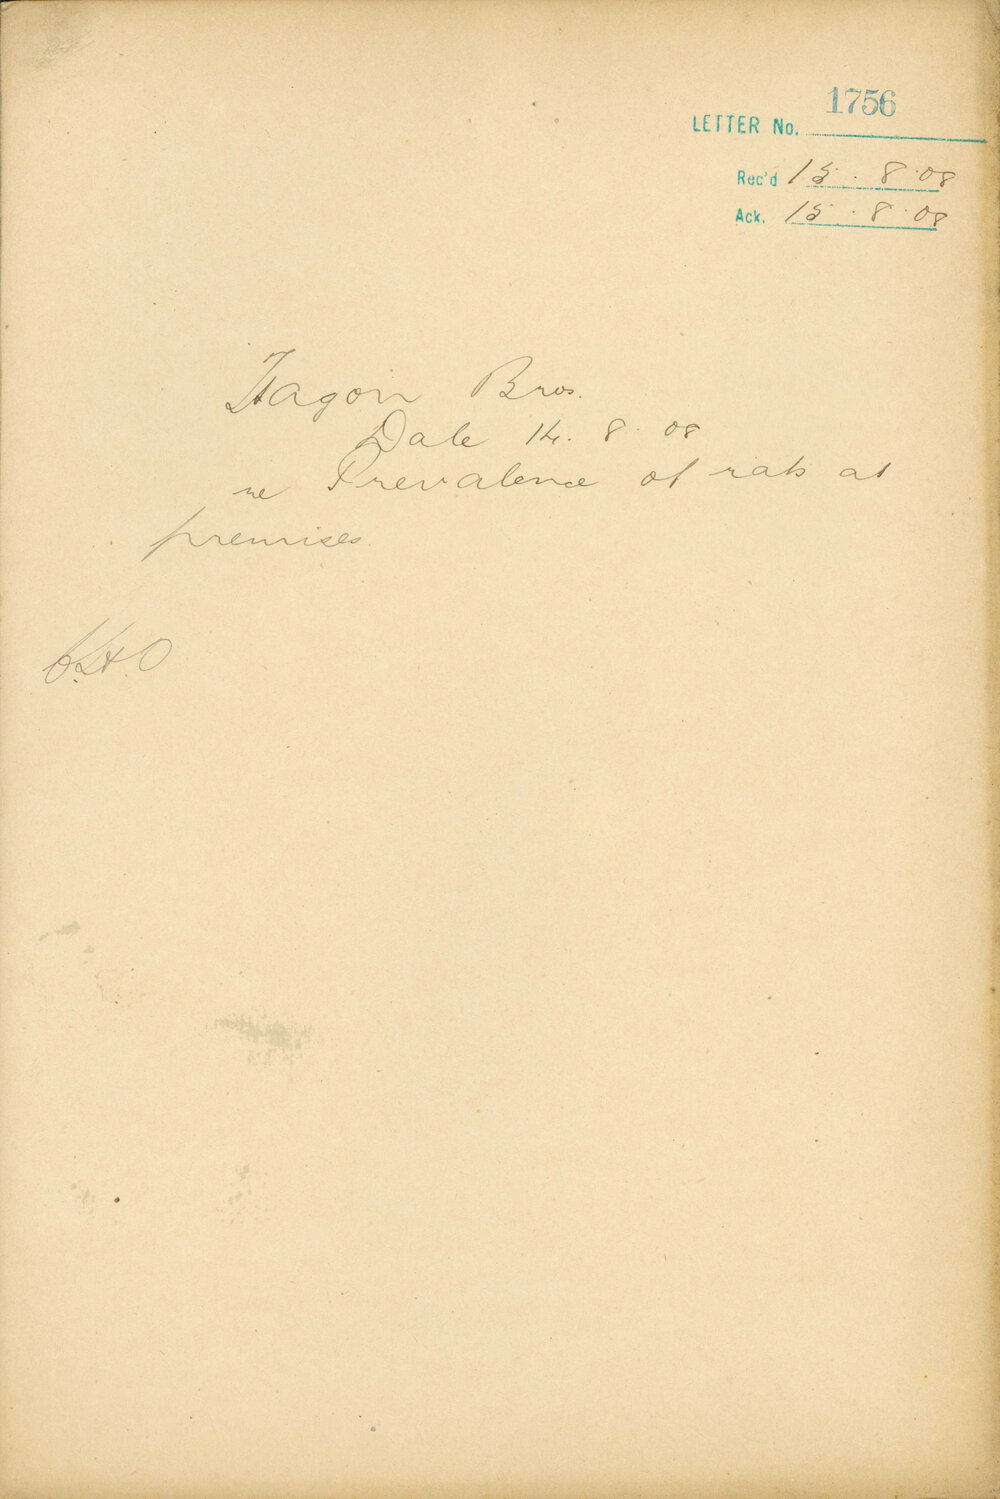 1756
LETTER No.
Rec'd 15.8.08
Ack. 15.8.08
Hagon Bros.
Date 14.8.08
re Prevalence of rats at
premises.
C.H.O